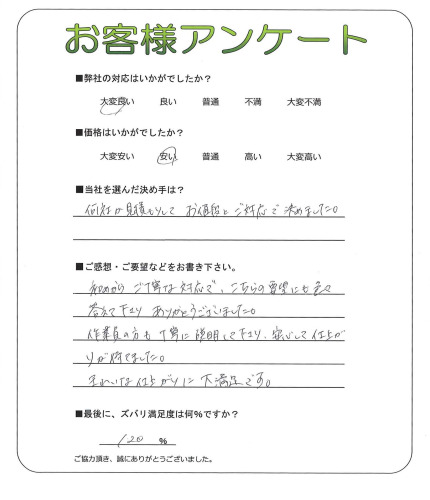 お客様アンケート
■弊社の対応はいかがでしたか？
大変良い 良い 普通 不満 大変不満
■価格はいかがでしたか？
大変安い 安い 普通 高い 大変高い
■当社を選んだ決め手は？
何社か見積もりして お値段とご対応で決めました。
■ご感想・ご要望などをお書き下さい。
初めから ご丁寧な対応で、こちらの要望にも色々
答えて下さり ありがとうございました。
作業員の方も 丁寧に説明して下さり、安心して仕上が
りが待てました。
きれいな仕上がりに 大満足です。
■最後に、ズバリ満足度は何%ですか？
120 %
ご協力頂き、誠にありがとうございました。